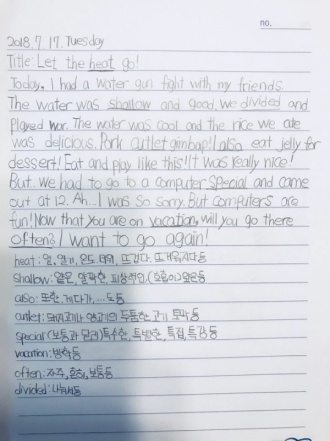 no.
2018.7.17. Tuesday
Title: Let the heat go!
Today, I had a water gun fight with my friends.
The water was shallow and good, we divided and
played war. The water was cool and the rice we ate
was delicious. Pork cutlet gimbap! I also eat jelly for
dessert! Eat and play like this! It was really nice!
But.. we had to go to a computer special and come
out at 12. Ah... I was so sorry. But computers are
fun! Now that you are on vacation, will you go there
often? I want to go again!
heat: 열, 열기, 온도 뜨겁다, 뜨거워지다 등
shallow: 얕은, 얄팍한, 피상적인, (호흡이) 얕은 등
also: 또한, 게다가, ...도 등
cutlet: 돼지고기나 두툼한 고기 토막 등
special (보통과 달리) 특수한, 특별한, 특집, 특강 등
vacation: 방학 등
often: 자주, 흔히, 보통 등
divided: 나뉘 등